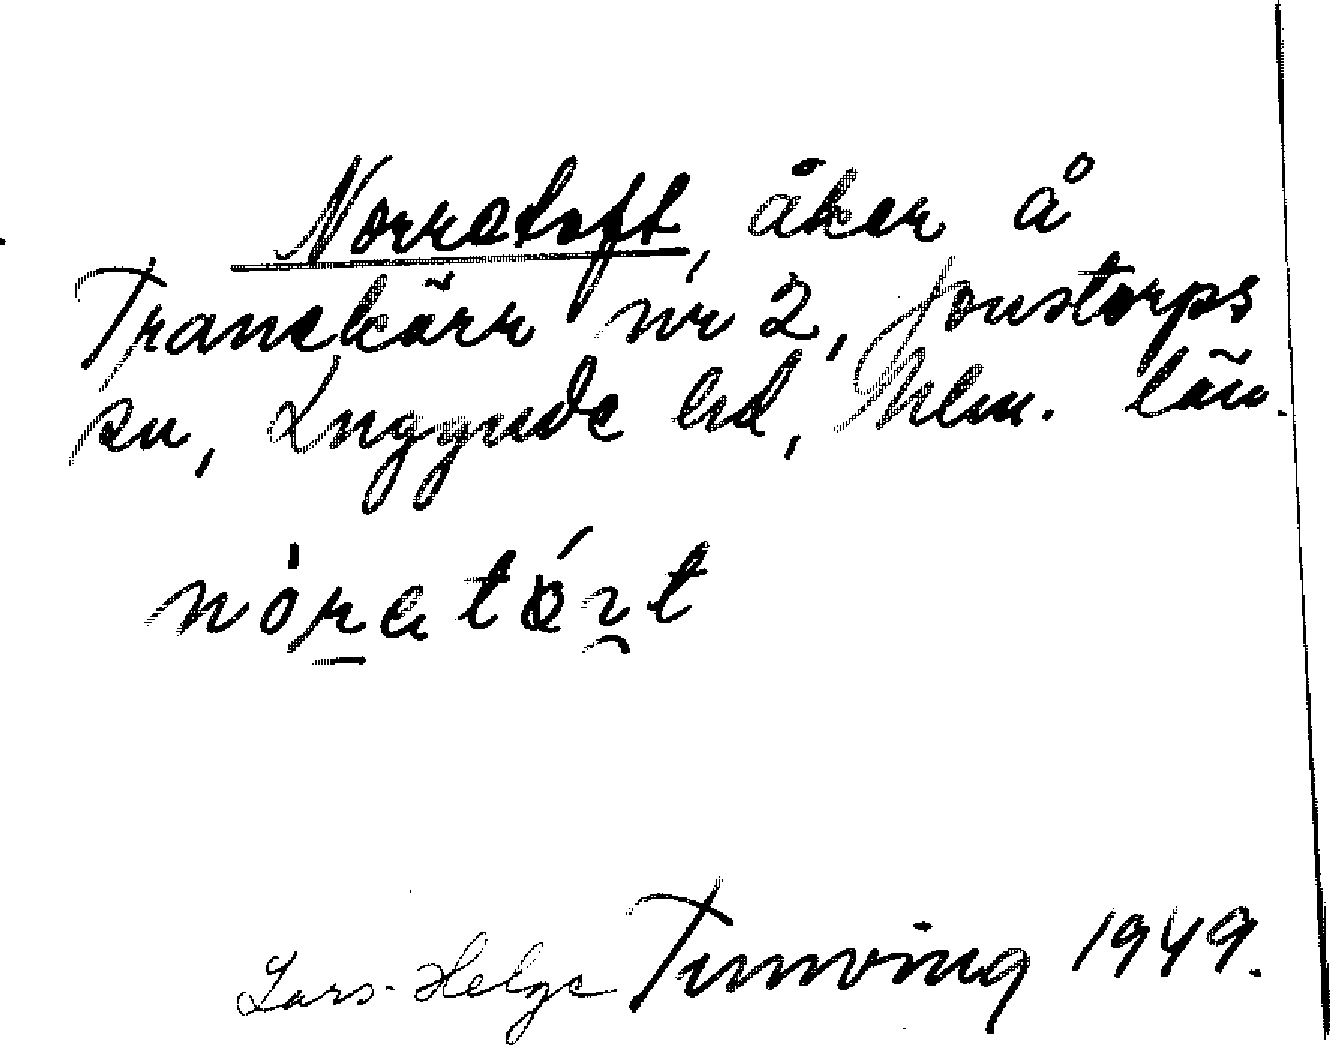 Norretoft, åker å
Tranekärr nr 2, Jonstorps
sn, Luggude hd, Mlm. län.
Lars-Helge Tunving 1949.